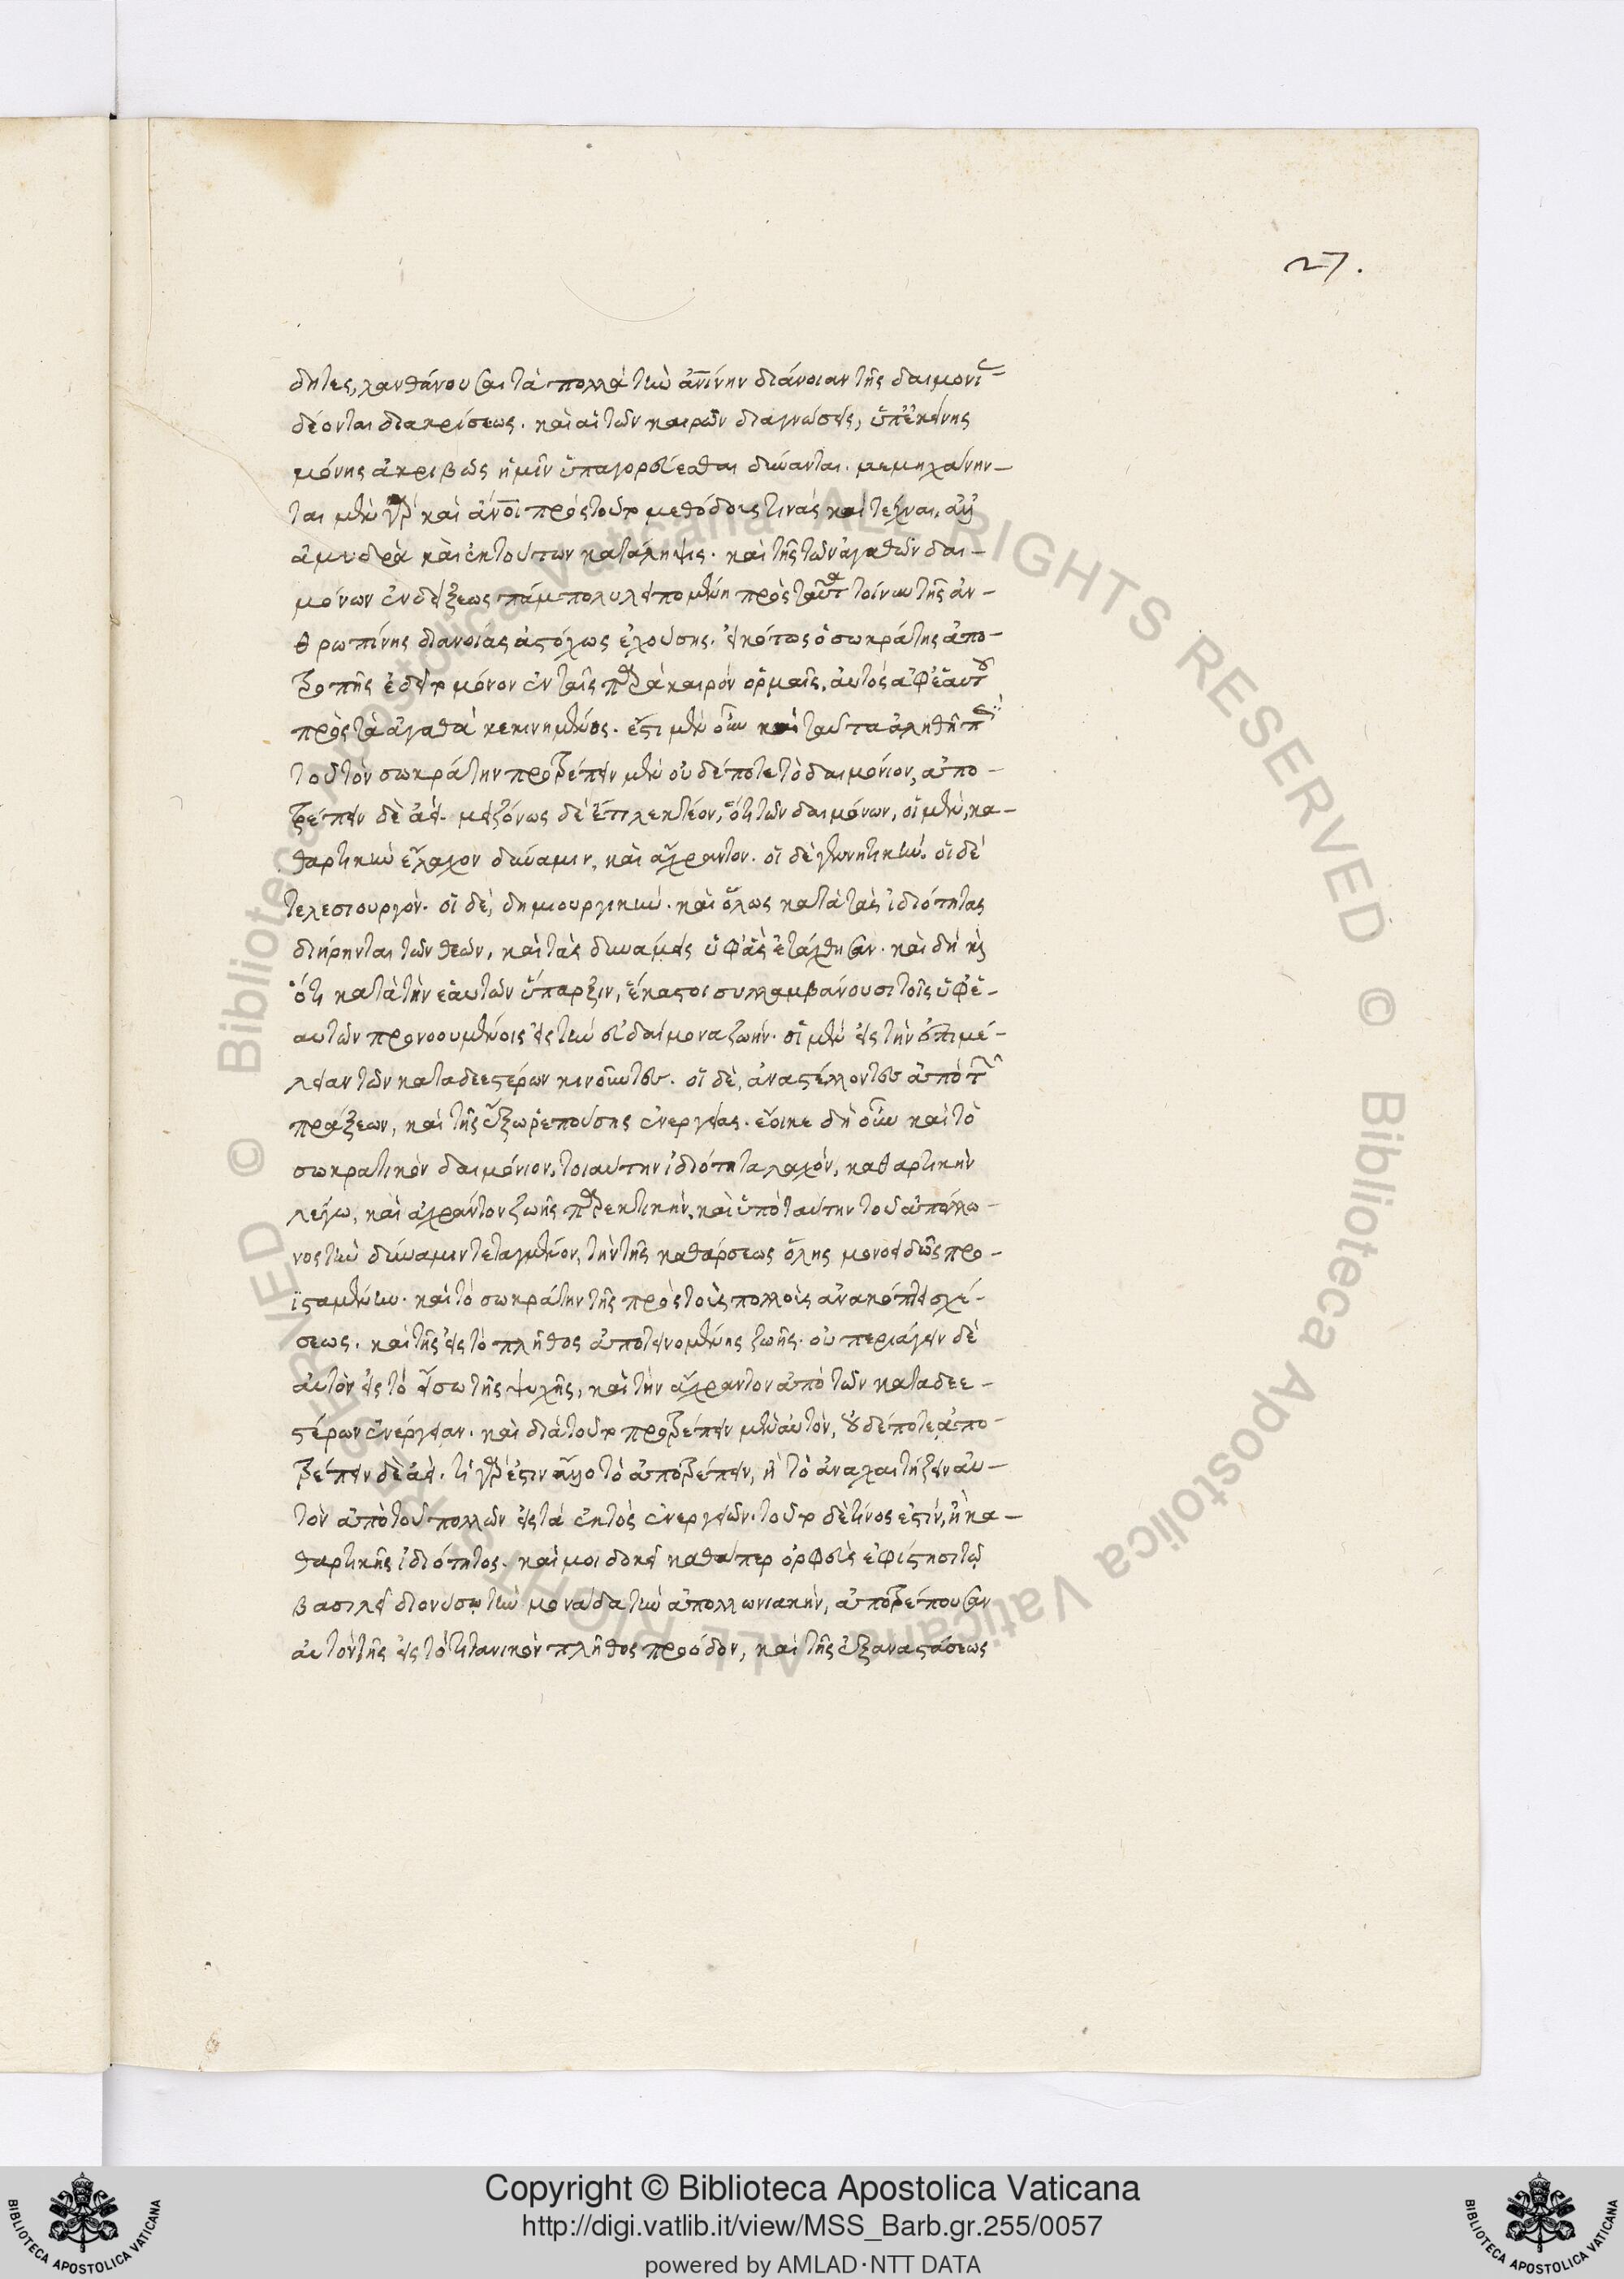 27.
δητες, λανθάνουσαι τὰ πολλὰ τὴν ἀνίνην διάνοιαν τῆς δαιμονί
δέονται διακρίσεως. καὶ αἱ τῶν καιρῶν διαγνώσεις, ὑπ' ἐκείνης
μόνης ἀκριβῶς ἡμῖν ὑπαγορεύεσθαι δύνανται. μεμηχάνην-
ται μὲν γὰρ καὶ ἄνοι πρὸς τοῦτο μεθόδους τινὰς καὶ τέχναι, ἀλλ'
ἀμυδρὰ καὶ ἐκ τούτων κατάληψις. καὶ τῆς τῶν ἀγαθῶν δαι-
μόνων ἐνδείξεως πάμπολυ λειπομένη πρὸς ταῦτα τοίνυν τῆς ἀν-
θρωπίνης διανοίας ἀστόχως ἐχούσης. εἰκότως ὁ σωκράτης ἀπο-
τροπῆς ἐδεῖτο μόνον ἐν ταῖς παρὰ καιρὸν ὁρμαῖς, αὐτὸς ἀφ' ἑαυτοῦ
πρὸς τὰ ἀγαθὰ κεκινημένος. ἔστι μὲν οὖν καὶ ταῦτα ἀληθῆ περὶ
τοῦ τὸν σωκράτην προτρέπειν μὲν οὐδέποτε τὸ δαιμόνιον, ἀπο-
τρέπειν δὲ ἀεί. μειζόνως δὲ ἔτι λεκτέον, ὅτι τῶν δαιμόνων, οἱ μὲν, κα-
θαρτικὴν ἔλαχον δύναμιν, καὶ ἄχραντον. οἱ δὲ γεννητικήν. οἱ δὲ
τελεσιουργόν. οἱ δὲ, δημιουργικήν. καὶ ὅλως κατὰ τὰς ἰδιότητας
διῄρηνται τῶν θεῶν, καὶ τὰς δυνάμεις ὑφ' ἃς ἐτάχθησαν. καὶ δὴ καὶ
ὅτι κατὰ τὴν ἑαυτῶν ὕπαρξιν, ἕκαστοι συλλαμβάνουσι τοῖς ὑφ' ἑ-
αυτῶν προνοουμένοις εἰς τὴν εὐδαίμονα ζωήν. οἱ μὲν εἰς τὴν ἐπιμέ-
λειαν τῶν καταδεεστέρων κινοῦντες. οἱ δὲ, ἀναστέλλοντες ἀπὸ τῶν
πράξεων, καὶ τῆς ἔξω ῥεπούσης ἐνεργείας. ἔοικε δὴ οὖν καὶ τὸ
σωκρατικὸν δαιμόνιον, τοιαύτην ἰδιότητα λαχόν, καθαρτικὴν
λέγω, καὶ ἀχράντου ζωῆς παρεκτικήν, καὶ ὑπὸ ταύτην τοῦ ἀπόλλω-
νος τὴν δύναμιν τεταγμένον, τὴν τῆς καθάρσεως ὅλης μονοειδῶς προ-
ϊσταμένην. καὶ τὸ σωκράτην τῆς πρὸς τοὺς πολλοὺς ἀνακόπτει σχέ-
σεως. καὶ τῆς εἰς τὸ πλῆθος ἀποτεινομένης ζωῆς. οὐ περιάγειν δὲ
αὐτὸν εἰς τὸ εἴσω τῆς ψυχῆς, καὶ τὴν ἄχραντον ἀπὸ τῶν καταδεε-
στέρων ἐνέργειαν. καὶ διὰ τοῦτο προτρέπειν μὲν αὐτὸν, οὐδέποτε ἀπο-
τρέπειν δὲ ἀεί. τί γάρ ἐστιν ἄλλο τὸ ἀποτρέπειν, ἢ τὸ ἀναχαιτίζειν αὐ-
τὸν ἀπὸ τοῦ πολλῶν εἰς τὰ ἐκτὸς ἐνεργειῶν. τοῦτο δὲ τίνος ἐστίν, ἢ κα-
θαρτικῆς ἰδιότητος. καί μοι δοκεῖ καθάπερ ὀρφεὺς ἐφίστησι τῷ
βασιλεῖ διονύσῳ τὴν μονάδα τὴν ἀπολλωνιακὴν, ἀποτρέπουσαν
αὐτὸν τῆς εἰς τὸ τιτανικὸν πλῆθος προόδου, καὶ τῆς ἐξαναστάσεως
Copyright © Biblioteca Apostolica Vaticana
http://digi.vatlib.it/view/MSS_Barb.gr.255/0057
powered by AMLAD·NTT DATA
BIBLIOTECA APOSTOLICA VATICANA
BIBLIOTECA APOSTOLICA VATICANA
© Biblioteca Apostolica Vaticana ALL RIGHTS RESERVED © Biblioteca Apostolica Vaticana ALL RIGHTS RESERVED